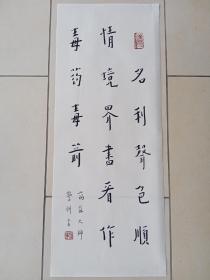 名利聲色順
情境界盡看作
毒药毒箭
蕅益大師